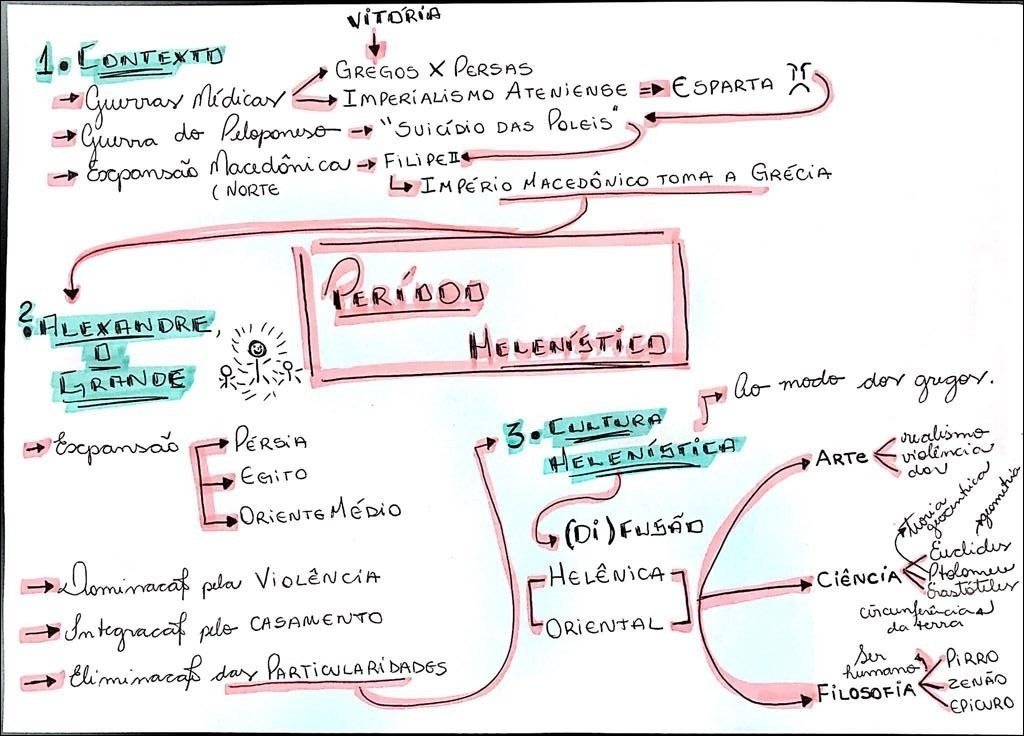 VITÓRIA
1. CONTEXTO
GREGOS X PERSAS
Guerras Médicas
IMPERIALISMO ATENIENSE ⇒ ESPARTA
Guerra do Peloponeso → "SUICÍDIO DAS POLEIS"
Expansão Macedônica → FILIPE II
(NORTE
IMPÉRIO MACEDÔNICO TOMA A GRÉCIA
PERÍODO
HELENÍSTICO
2. ALEXANDRE,
O
GRANDE
Expansão
PÉRSIA
EGITO
ORIENTE MÉDIO
Dominação pela VIOLÊNCIA
Integração pelo CASAMENTO
Eliminação das PARTICULARIDADES
Ao modo dos gregos.
3. CULTURA
HELENÍSTICA
(DI) FUSÃO
HELÊNICA
ORIENTAL
ARTE
realismo
violência
dor
CIÊNCIA
teoria
geocêntrica
geometria
Euclides
Ptolomeu
Erastótiles
circunferência
da terra
Ser
humano
FILOSOFIA
PIRRO
ZENÃO
EPICURO